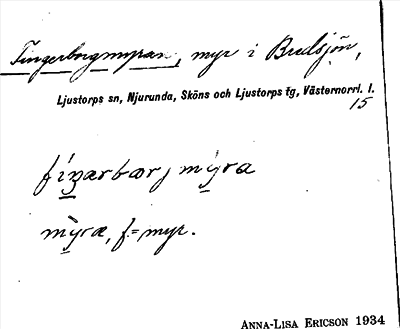 Fingerborgmyran, myr i Bredsjön,
Ljustorps sn, Njurunda, Sköns och Ljustorps tg, Västernorrl. l.
15
mỳra, f. = myr.
ANNA-LISA ERICSON 1934